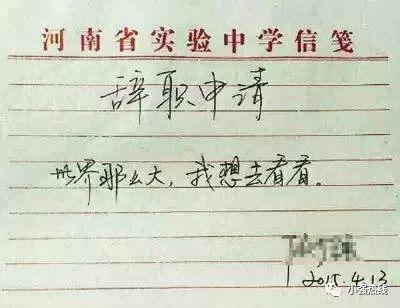 河南省实验中学信笺
辞职申请
世界那么大,我想去看看。
2015.4.13
小强热线